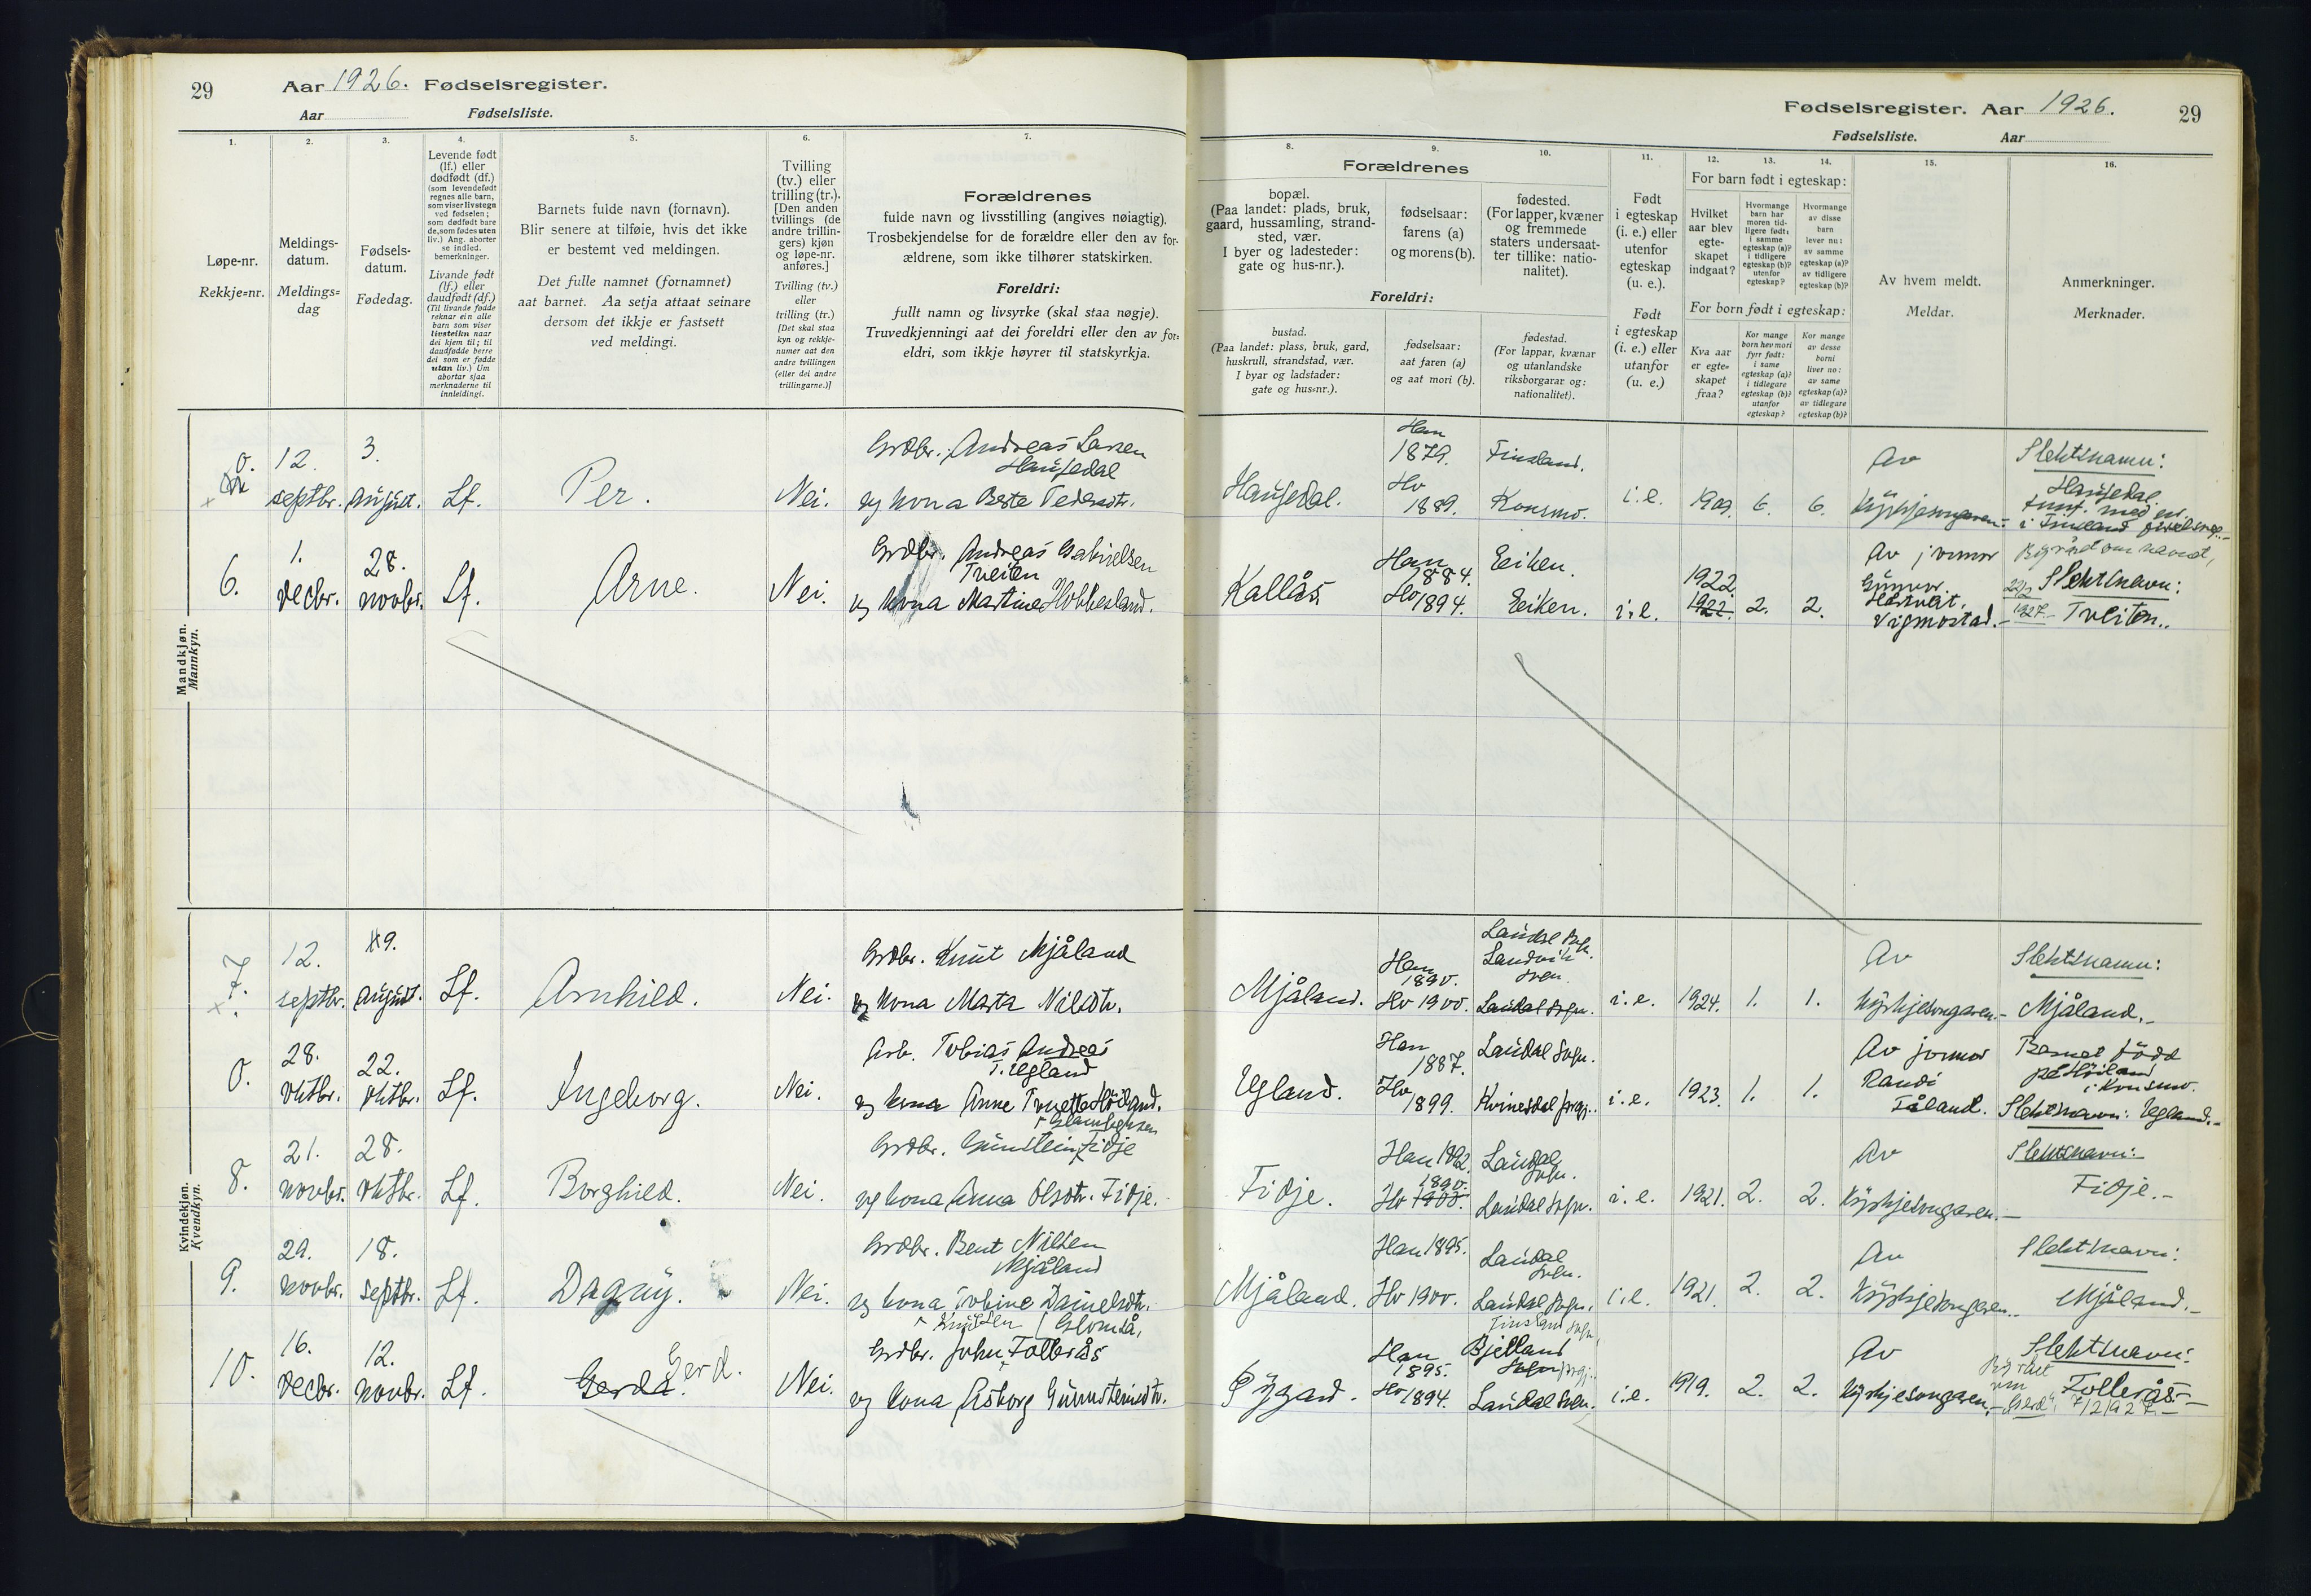 29
Aar 1926. Fødselsregister.
Aar
Fødselsliste.
1.
Løpe-nr.
Rekkje-nr.
2.
Meldings-
datum.
Meldings-
dag
3.
Fødsels-
datum.
Fødedag.
4.
Levende født
(lf.) eller
dødfødt (df.)
(som levendefødt
regnes alle barn,
som viser livstegn
ved fødselen;
som dødfødt bare
de, som fødes uten
liv.) Ang. aborter
se indled.
bemerkninger.
Livande født
(lf.) eller
daudfødt (df.)
(Til livande fødde
reknar ein alle
barn som viser
livsteikn naar
dei kjem til; til
daudfødde berre
dei som er fødde
utan liv.) Um
abortar sjaa
merknaderne til
innleidingi.
5.
Barnets fulde navn (fornavn).
Blir senere at tilføie, hvis det ikke
er bestemt ved meldingen.
Det fulle namnet (fornamnet)
aat barnet. Aa setja attaat seinare
dersom det ikkje er fastsett
ved meldingi.
6.
Tvilling
(tv.) eller
trilling (tr.).
[Den anden
tvillings (de
andre trillin-
gers) kjøn
og løpe-nr.
anføres.]
Tvilling (tv.)
eller
trilling (tr.)
[Det skal staa
kyn og rekkje-
numer aat den
andre tvillingen
(eller dei andre
trillingarne.)]
7.
Forældrenes
fulde navn og livsstilling (angives nøiagtig).
Trosbekjendelse for de forældre eller den av for-
ældrene, som ikke tilhører statskirken.
Foreldri:
fullt namn og livsyrke (skal staa nøgje).
Truvedkjenningi aat dei foreldri eller den av for-
eldri, som ikkje høyrer til statskyrkja.
Mandkjøn.
Mannkyn.
0.
12.
septbr.
3.
august.
Lf.
Per.
Nei.
Grdbr. Andreas Larsen
Haugedal
og kona Berte Pedersdtr.
6.
1.
decbr.
28.
novbr.
Lf.
Arne.
Nei.
Grdbr. Andreas Gabrielsen
Tveiten
og kona Martine Hobbesland.
Kvindekjøn.
Kvendkyn.
7.
12.
septbr.
9.
august.
Lf.
Arnhild.
Nei.
Grdbr. Knut Mjåland
og kona Marta Nilsdtr.
0.
28.
oktbr.
22.
oktbr.
Lf.
Ingeborg.
Nei.
Arb. Tobias Andreas
T. Ugland
og kona Anne Tonette Höiland.
8.
21.
novbr.
28.
oktbr.
Lf.
Borghild.
Nei.
Grdbr. Gunstein Fidje
og kona Anna Olsdtr. Fidje.
9.
29.
novbr.
18.
septbr.
Lf.
Dagny.
Nei.
Grdbr. Bent Nilsen
Mjåland
og kona Tobine Danielsdtr.
Knutsen Glomså,
10.
16.
decbr.
12.
novbr.
Lf.
Gerda. Gerd.
Nei.
Grdbr. John Follerås
og kona Asborg Gunnsteinsdtr.
Fødselsregister. Aar 1926.
29
Fødselsliste.
Aar
8.
9.
10.
Forældrenes
bopæl.
(Paa landet: plads, bruk,
gaard, hussamling, strand-
sted, vær.
I byer og ladesteder:
gate og hus-nr.).
fødselsaar:
farens (a)
og morens (b).
fødested.
(For lapper, kvæner
og fremmede
staters undersaat-
ter tillike: natio-
nalitet).
Foreldri:
bustad.
(Paa landet: plass, bruk, gard,
huskrull, strandstad, vær.
I byar og ladstader:
gate og hus-nr.).
fødselsaar:
aat faren (a)
og aat mori (b).
fødestad.
(For lappar, kvænar
og utanlandske
riksborgarar og:
nationalitet).
11.
Født
i egteskap
(i. e.) eller
utenfor
egteskap
(u. e.).
Født
i egteskap
(i. e.) eller
utanfor
(u. e.)
12.
13.
14.
For barn født i egteskap:
Hvilket
aar blev
egte-
skapet
indgaat?
Hvormange
barn har
moren tid-
ligere født:
i samme
egteskap (a)?
i tidligere
egteskap (b)?
utenfor
egteskap?
Hvormange
av disse
barn
lever nu:
av samme
egteskap (a)?
av tidligere
egteskap (b)?
For born født i egteskap:
Kva aar
er egte-
skapet
fraa?
Kor mange
born hev mori
fyrr født:
i same
egteskap (a)?
i tidlegare
egteskap (b)?
utanfor
egteskap?
Kor mange
av desse
borni
liver no:
av same
egteskap (a)?
av tidlegare
egteskap (b)?
15.
Av hvem meldt.
Meldar.
16.
Anmerkninger.
Merknader.
Haugedal.
Han
1879.
Ho
1889.
Finsland.
Konsmo.
i.e.
1909.
6.
6.
Av
Kyrkjesongaren.
Slektsnamn:
Haugedal.
Kallås.
Han
1884.
Ho 1894.
Eiken.
Eiken.
i.e.
1922.
1922.
2.
2.
Av jormor
Vigmostad.
Slektsnavn:
1927. Tveiten.
Mjåland.
Han
1890.
Ho 1900.
Laudal sokn.
Landvik
sokn.
Laudal sokn.
i.e.
1924.
1.
1.
Av
Kyrkjesongaren.
Slektsnamn:
Mjåland.
Ugland.
Han
1887.
Ho
1899.
Laudal sokn.
Kvinesdal prgj.
i.e.
1923.
1.
1.
Av jormor
Randi
Tåland.
Barnet född
på Höiland
i Konsmo.
Slektsnavn: Ugland.
Fidje.
Han 1892.
1890.
Ho 1900.
Laudal
sokn.
Laudal sokn.
i.e.
1921.
2.
2.
Av
Kyrkjesongaren.
Slektsnavn:
Fidje.
Mjåland.
Han 1895.
Ho 1900.
Laudal
sokn.
Laudal sokn.
i.e.
1921.
2.
2.
Av
Kyrkjesongaren.
Slektsnavn:
Mjåland.
Han
1895.
Ho 1894.
Finsland sokn,
Bjelland
sokn prgj.
Laudal sokn.
i.e.
1919.
2.
2.
Av
Kyrkjesongaren.
Slektsnavn:
Follerås.
"Gerd", 7/2 1927.